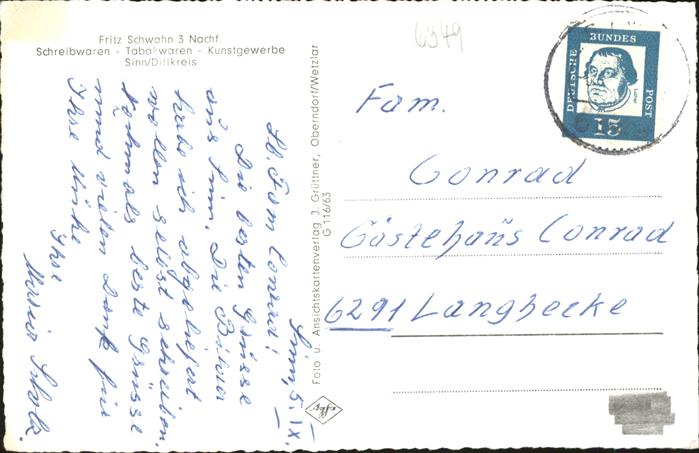 Fritz Schwahn 3 Nachf.
Schreibwaren - Tabakwaren - Kunstgewerbe
Sinn/Dillkreis
6349
DEUTSCHE BUNDES POST
Luther
15
Sinn, 5. IX.
Lb. Fam Conrad!
Die besten Grüsse
aus Sinn. Die Bilder
habe ich abgeliefert
wollen selbst schreiben.
Nochmals beste Grüsse
und vielen Dank für
Ihre Mühe
Ihre
Foto u. Ansichtskartenverlag J. Grüttner, Oberndorf/Wetzlar
G 116/63
Agfa
Fam.
Conrad
Gästehaus Conrad
6291 Langhecke